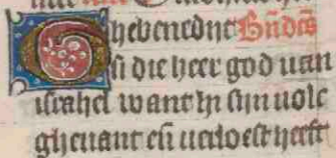 Ghebenedijt Bn̄dc̄s
si die heer god uan
israhel want hi sijn uolc
gheuant eñ uerloest heeft